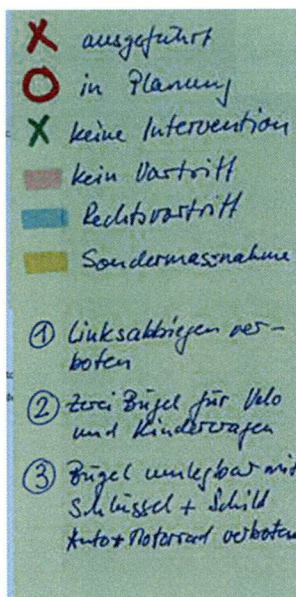 X ausgeführt
O in Planung
X keine Intervention
kein Vortritt
Rechtsvortritt
Sondermassnahme
① Linksabbiegen ver-
boten
② zwei Bügel für Velo
und Kinderwagen
③ Bügel umlegbar mit
Schlüssel + Schild
Auto+Motorrad verboten